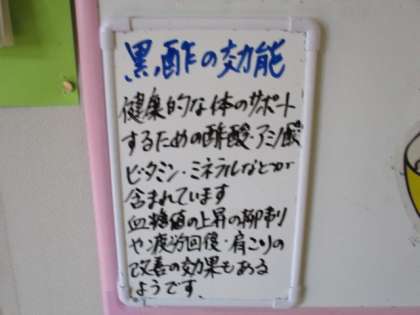 黒酢の効能
健康的な体のサポート
するための酢酸・アミノ酸
ビタミン・ミネラルなどが
含まれています
血糖値の上昇の抑制
や疲労回復・肩こりの
改善の効果もある
ようです。